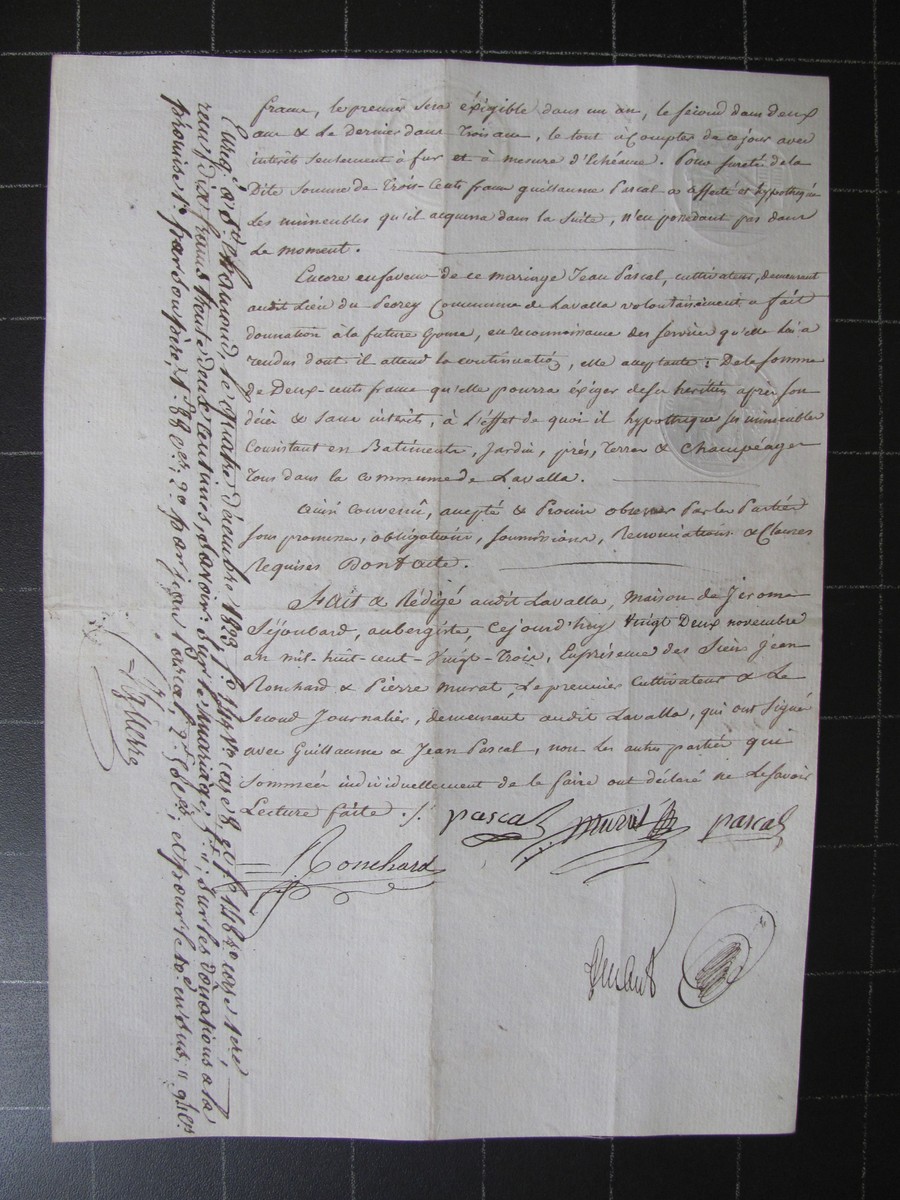 francs, le premier sera éxigible dans un an, le second dans deux
ans & le dernier dans trois ans, le tout à Compter de ce jour avec
intérêts seulement à fur et à mesure d'Echéance. Pour sureté de la
Dite Somme de Trois-Cents francs guillaume Pascal a affecté et hypothéqué
Les immeubles qu'il acquerra dans la suite, n'en possedant pas dans
Le moment.
Encore en faveur de ce mariage Jean Pascal, cultivateur, demeurant
audit Lieu du Peorey Commune de Lavalla volontairement a fait
donnation à la future Epouse, en reconnoissance des services qu'elle lui a
rendus dont il attend la continuation, elle acceptante: De la somme
de Deux-cents francs qu'elle pourra éxiger de ses heritiers après son
décès & sans interêts, à L'effet de quoi il hypothèque ses immeubles
Consistant en Batiments, Jardin, prés, Terres & Champéages
Tous dans la commune de Lavalla.
Ainsi Convenu, accepté & Promis observer Par les Parties
sous promesses, obligations, soumissions, Renonciations & Clauses
Requises Dont acte.
Fait & Rédigé audit Lavalla, maison de Jérome
Séjoubard, aubergiste, Cejourd'huy Vingt Deux novembre
an mil-huit-cent-Vingt-Trois, En présence des Sieurs Jean
Ronchard & Pierre Murat, Le premier Cultivateur & Le
Second Journalier, demeurant audit Lavalla, qui ont Signé
avec Guillaume & Jean Pascal, non Les autres parties qui
Sommées individuellement de le faire ont déclaré ne Le savoir
Lecture faite ./.
pascal murat pascal
Ronchard
finant
Enreg. à St. Chamond, le quatre décembre 1823, fo. 147 Vo. cases 8 et fo. 148 Ro. cases 1ere,
reçu dix francs trente deux centimes, savoir: sur le mariage, 5f. "; sur les donations a la
promise 1o. par son père, 1f. 88 ces., 2o. par jean Pascal, 2f. 50 ces.; et pour le 10e. en sus, " 94 ces.